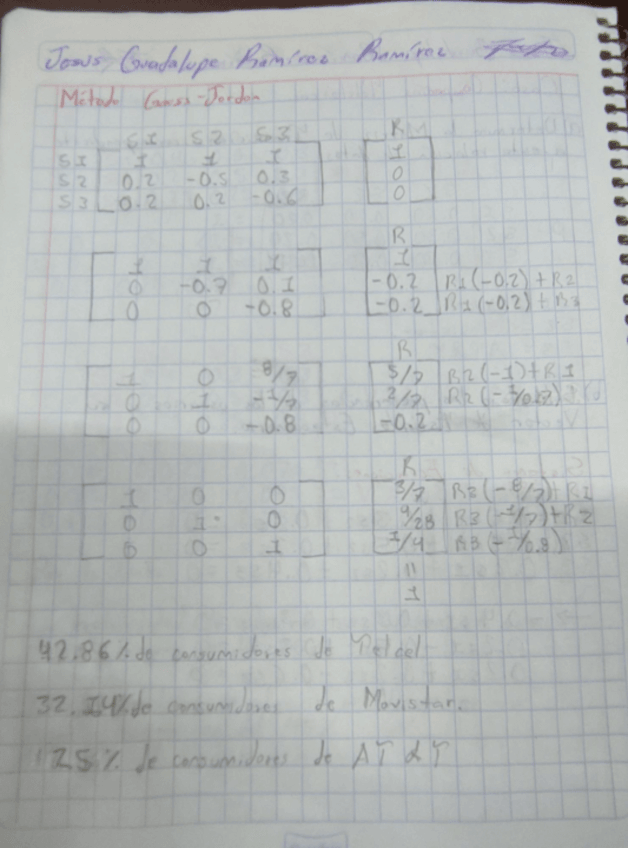 Jesus Guadalupe Ramírez Ramírez
Método Gauss-Jordan
S1 S2 S3 R
S1 1 1 1 1
S2 0.2 -0.5 0.3 0
S3 0.2 0.2 -0.6 0
R
1 1 1 1
0 -0.7 0.1 -0.2 R1(-0.2)+R2
0 0 -0.8 -0.2 R1(-0.2)+R3
R
1 0 8/7 5/7 R2(-1)+R1
0 1 -1/7 2/7 R2
0 0 -0.8 -0.2
R
1 0 0 3/7 R3(-8/7)+R1
0 1 0 9/28 R3(-1/7)+R2
0 0 1 1/4 R3(-1/0.8)
11
1
42.86% de consumidores de Telcel
32.14% de consumidores de Movistar.
25% de consumidores de AT&T